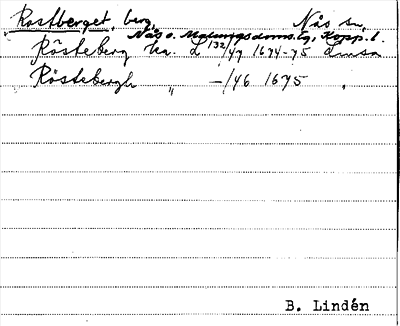 Rostberget, berg, Nås sn,
Nås o. Malungs doms. tg, Kopp. l.
Rösteberg ha. 2 132/47 1674-75 Ämsa
Röstebergh " -/46 1675 "
B. Lindén